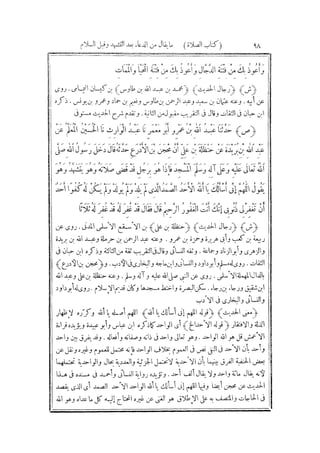 ٩٨ (كتاب الصلاة) ما يقال من الدعاء بعد التشهد وقبل السلام
وأعوذ بك من فتنة الدجال وأعوذ بك من فتنة المحيا والممات
(ش) (رجال الحديث) (محمد بن عبد الله بن طاوس) بن كيسان اليماني. روى
عن أبيه. وعنه عثمان بن سعيد وعبد الرحمن بن طاوس ونعيم بن حماد وعمرو بن يونس. ذكره
ابن حبان في الثقات وقال في التقريب مقبول من الثانية. وتقدم شرح الحديث مستوفى
(ص) حدثنا عبد الله بن عمرو أبو معمر نا عبد الوارث نا الحسين المعلم عن
عبد الله بن بريدة عن حنظلة بن علي أن محجن بن الأدرع حدثه قال دخل رسول الله صلى
الله تعالى عليه وعلى آله وسلم المسجد فإذا هو برجل قد قضى صلاته وهو يتشهد وهو
يقول اللهم إني أسألك يا الله الأحد الصمد الذي لم يلد ولم يولد ولم يكن له كفوا أحد
أن تغفر لي ذنوبي إنك أنت الغفور الرحيم قال فقال قد غفر له قد غفر له ثلاثا
(ش) (رجال الحديث) (حنظلة بن علي) بن الأسقع الأسلمي المدني. روى عن
ربيعة بن كعب وأبي هريرة وحمزة بن عمرو. وعنه عبد الرحمن بن حرملة وعبد الله بن بريدة
والزهري وأبو الزناد وجماعة. وثقه النسائي وقال في التقريب ثقة من الثالثة وذكره ابن حبان في
الثقات. روى له مسلم وأبو داود والنسائي وابن ماجه والبخاري في الأدب. و(محجن بن الأدرع)
بالدال المهملة الأسلمي. روى عن النبي صلى الله عليه وآله وسلم. وعنه حنظلة بن علي وعبد الله
ابن شقيق ورجاء بن رجاء. سكن البصرة واختط مسجدها وكان قديم الإسلام. روى له أبو داود
والنسائي والبخاري في الأدب
(معنى الحديث) (قوله اللهم إني أسألك يا الله) اللهم أصله يا الله وكرره لإظهار
الذلة والافتقار (قوله الأحد الخ) أي الواحد كما ذكره ابن عباس وأبو عبيدة ويؤيده قراءة
الأعمش قل هو الله الواحد. وهو تعالى واحد في ذاته وصفاته وأفعاله. وقد يفرق بين واحد
وأحد بأن الأحد في النفي نص في العموم بخلاف الواحد فإنه محتمل للعموم وغيره ونقل عن
بعض الحنفية الفرق بينهما بأن الأحدية لا تحتمل الجزئية والعددية بحال والواحدية تحتملهما
لأنه يقال مائة واحد ولا يقال ألف أحد. وتؤيده رواية النسائي وأحمد في مسنده في هذا
الحديث عن محجن أيضا وفيها اللهم إني أسألك يا الله الواحد الأحد الصمد أي الذي يقصد
في الحاجات والمتصف به على الإطلاق هو الغني عن غيره المحتاج إليه كل ما عداه وهو الله